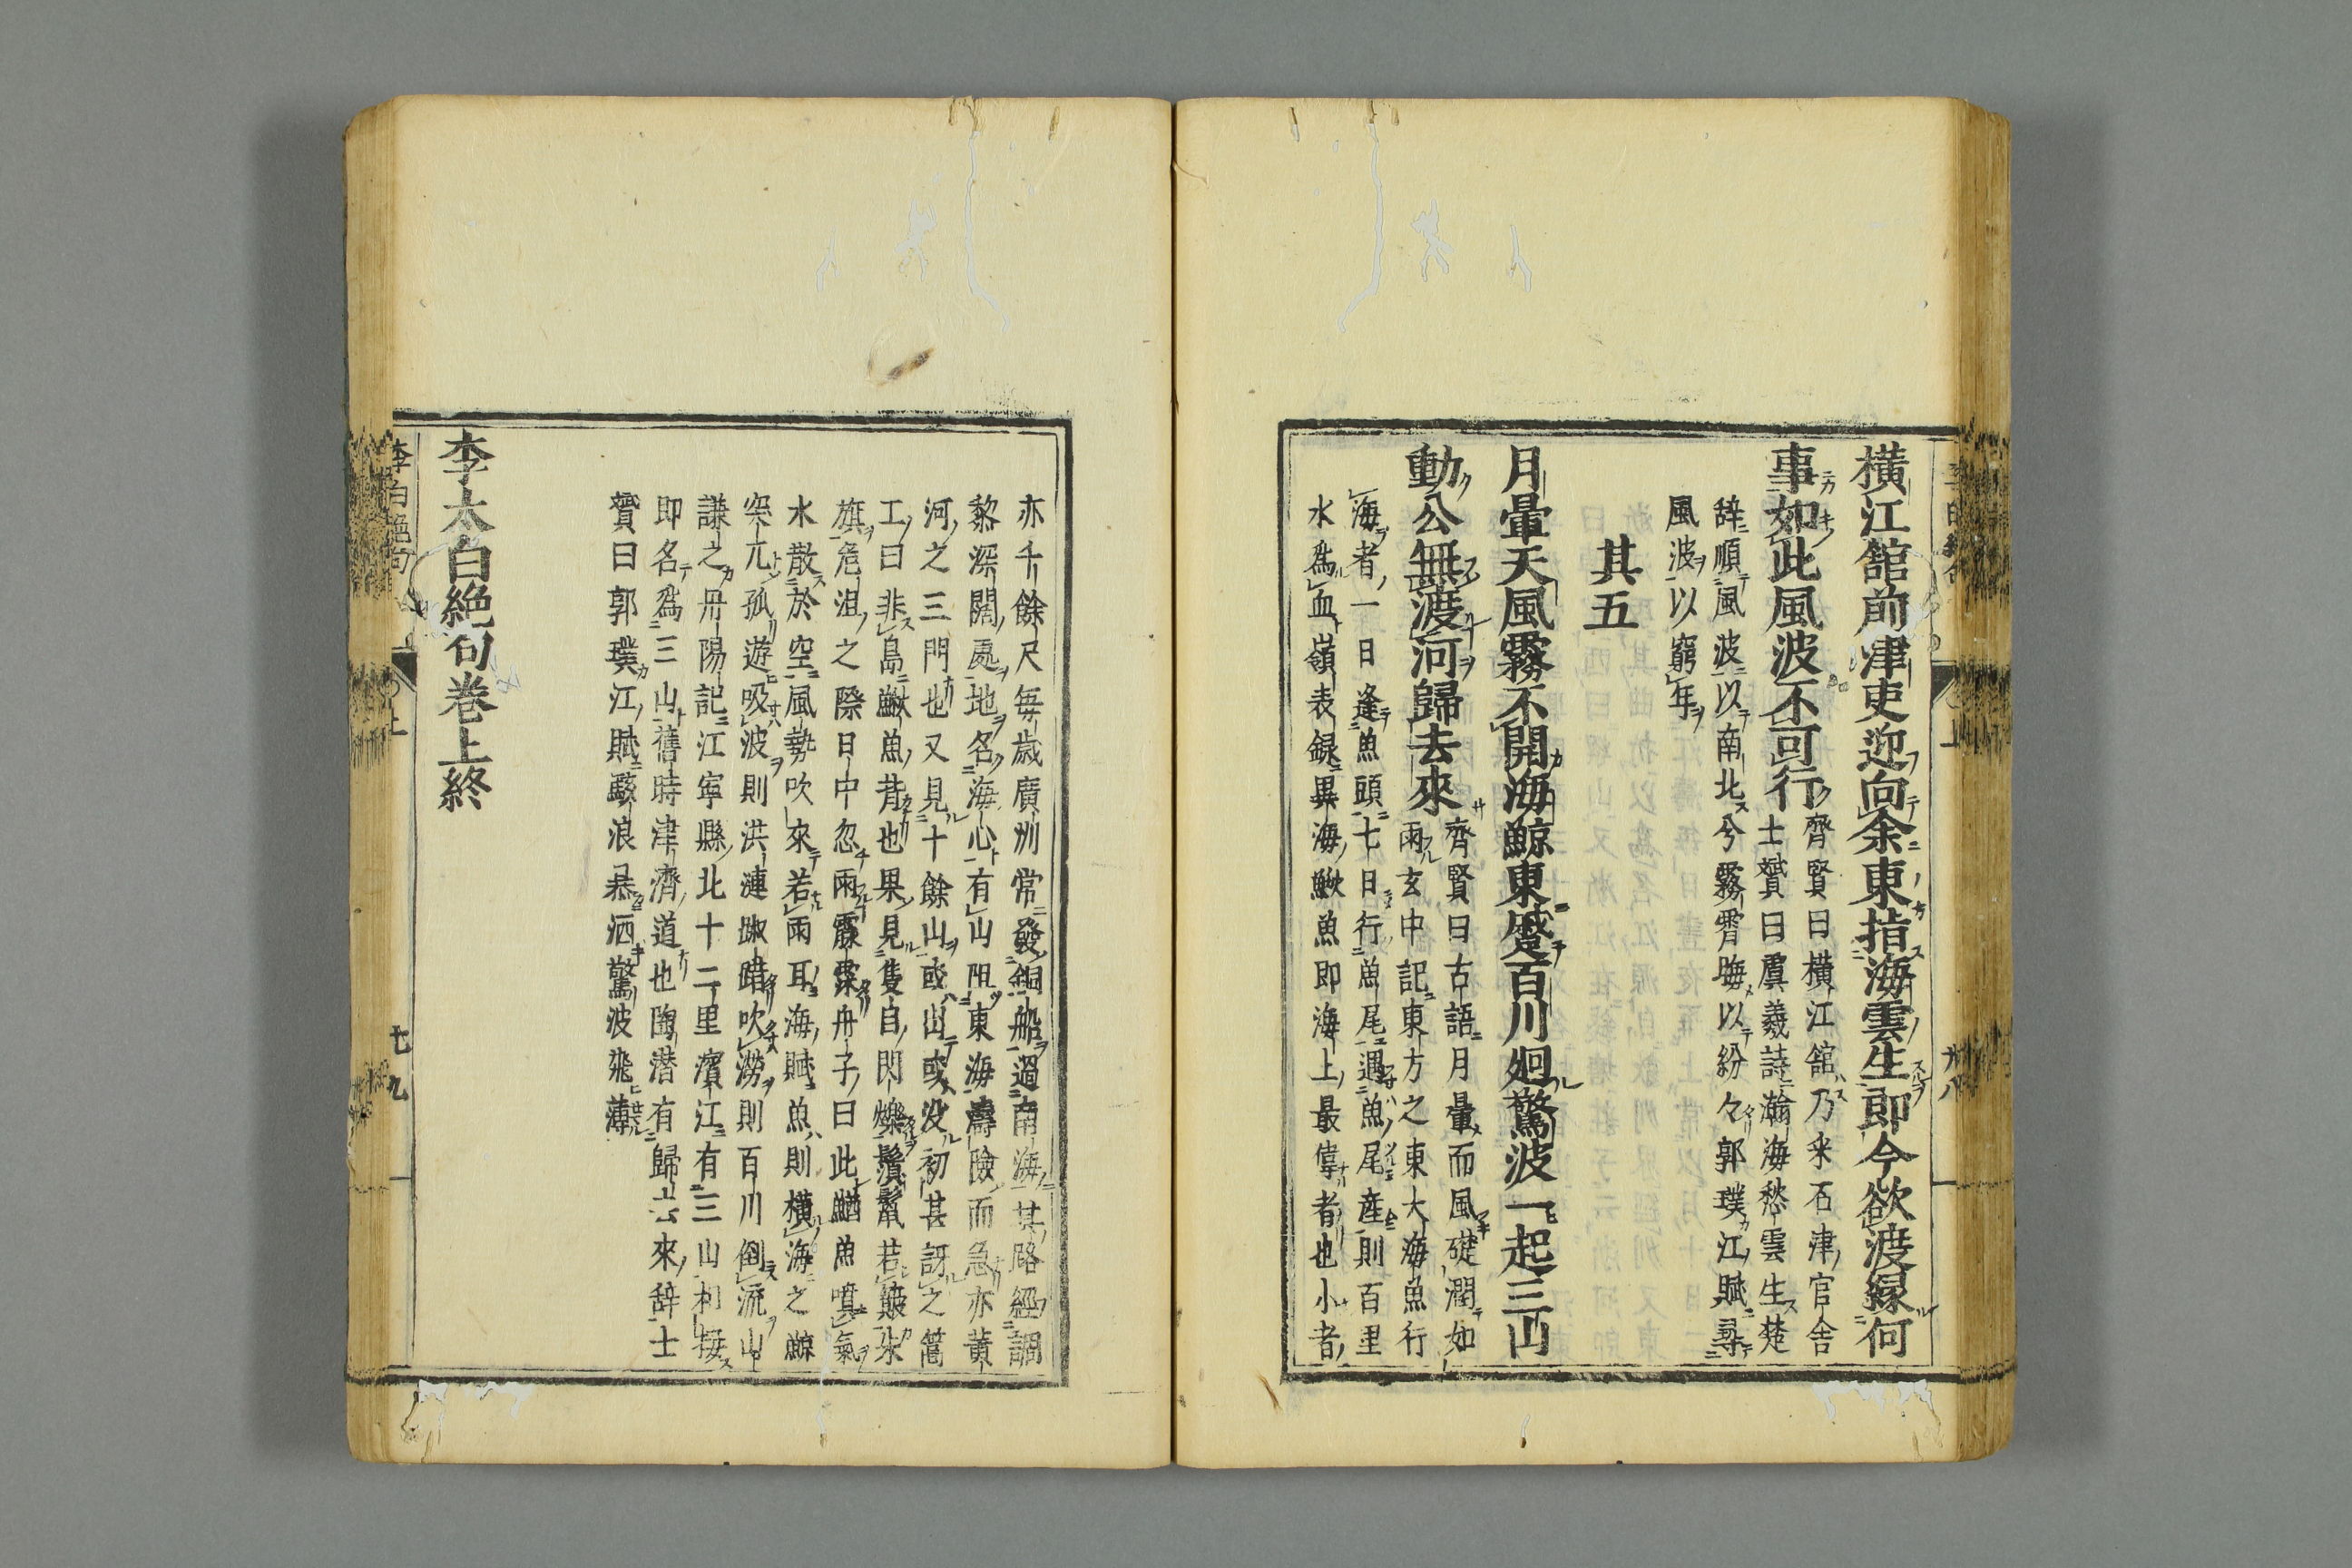 横江舘前津吏迎向余東指海雲生即今欲渡縁何
事如此風波不可行
齊賢曰横江舘乃釆石津官舎
士贇曰虞羲詩瀚海愁雲生楚
辞順風波以南北兮霧霄晦以紛々郭璞江賦尋
風波以窮年
其五
月暈天風霧不開海鯨東蹙百川廻驚波一起三山
動公無渡河歸去來
齊賢曰古語月暈而風礎潤如
雨玄中記東方之東大海魚行
海者一日逢魚頭七日行魚尾遇魚尾産則百里
水為血嶺表録異海鰍魚即海上最偉者也小者
亦千餘尺毎歳廣州常發銅船過南海其路經調
黎深闊處地名海心有山阻東海濤險而急亦黄
河之三門也又見十餘山或出或没初甚訝之篙
工曰非島鰍魚背也果見隻自閃爍鬚鬣若簸朱
旗危沮之際日中忽雨霡霂舟子曰此鰌魚噴氣
水散於空風勢吹來若雨耳海賦魚則横海之鯨
突兀孤遊吸波則洪漣踧踖吹澇則百川倒流山
謙之丹陽記江寧縣北十二里濱江有三山相接
即名為三山舊時津濟道也陶潜有歸去來辞士
贇曰郭璞江賦駭浪暴洒驚波飛薄
李太白絶句巻上終
李白絶句 上 七九